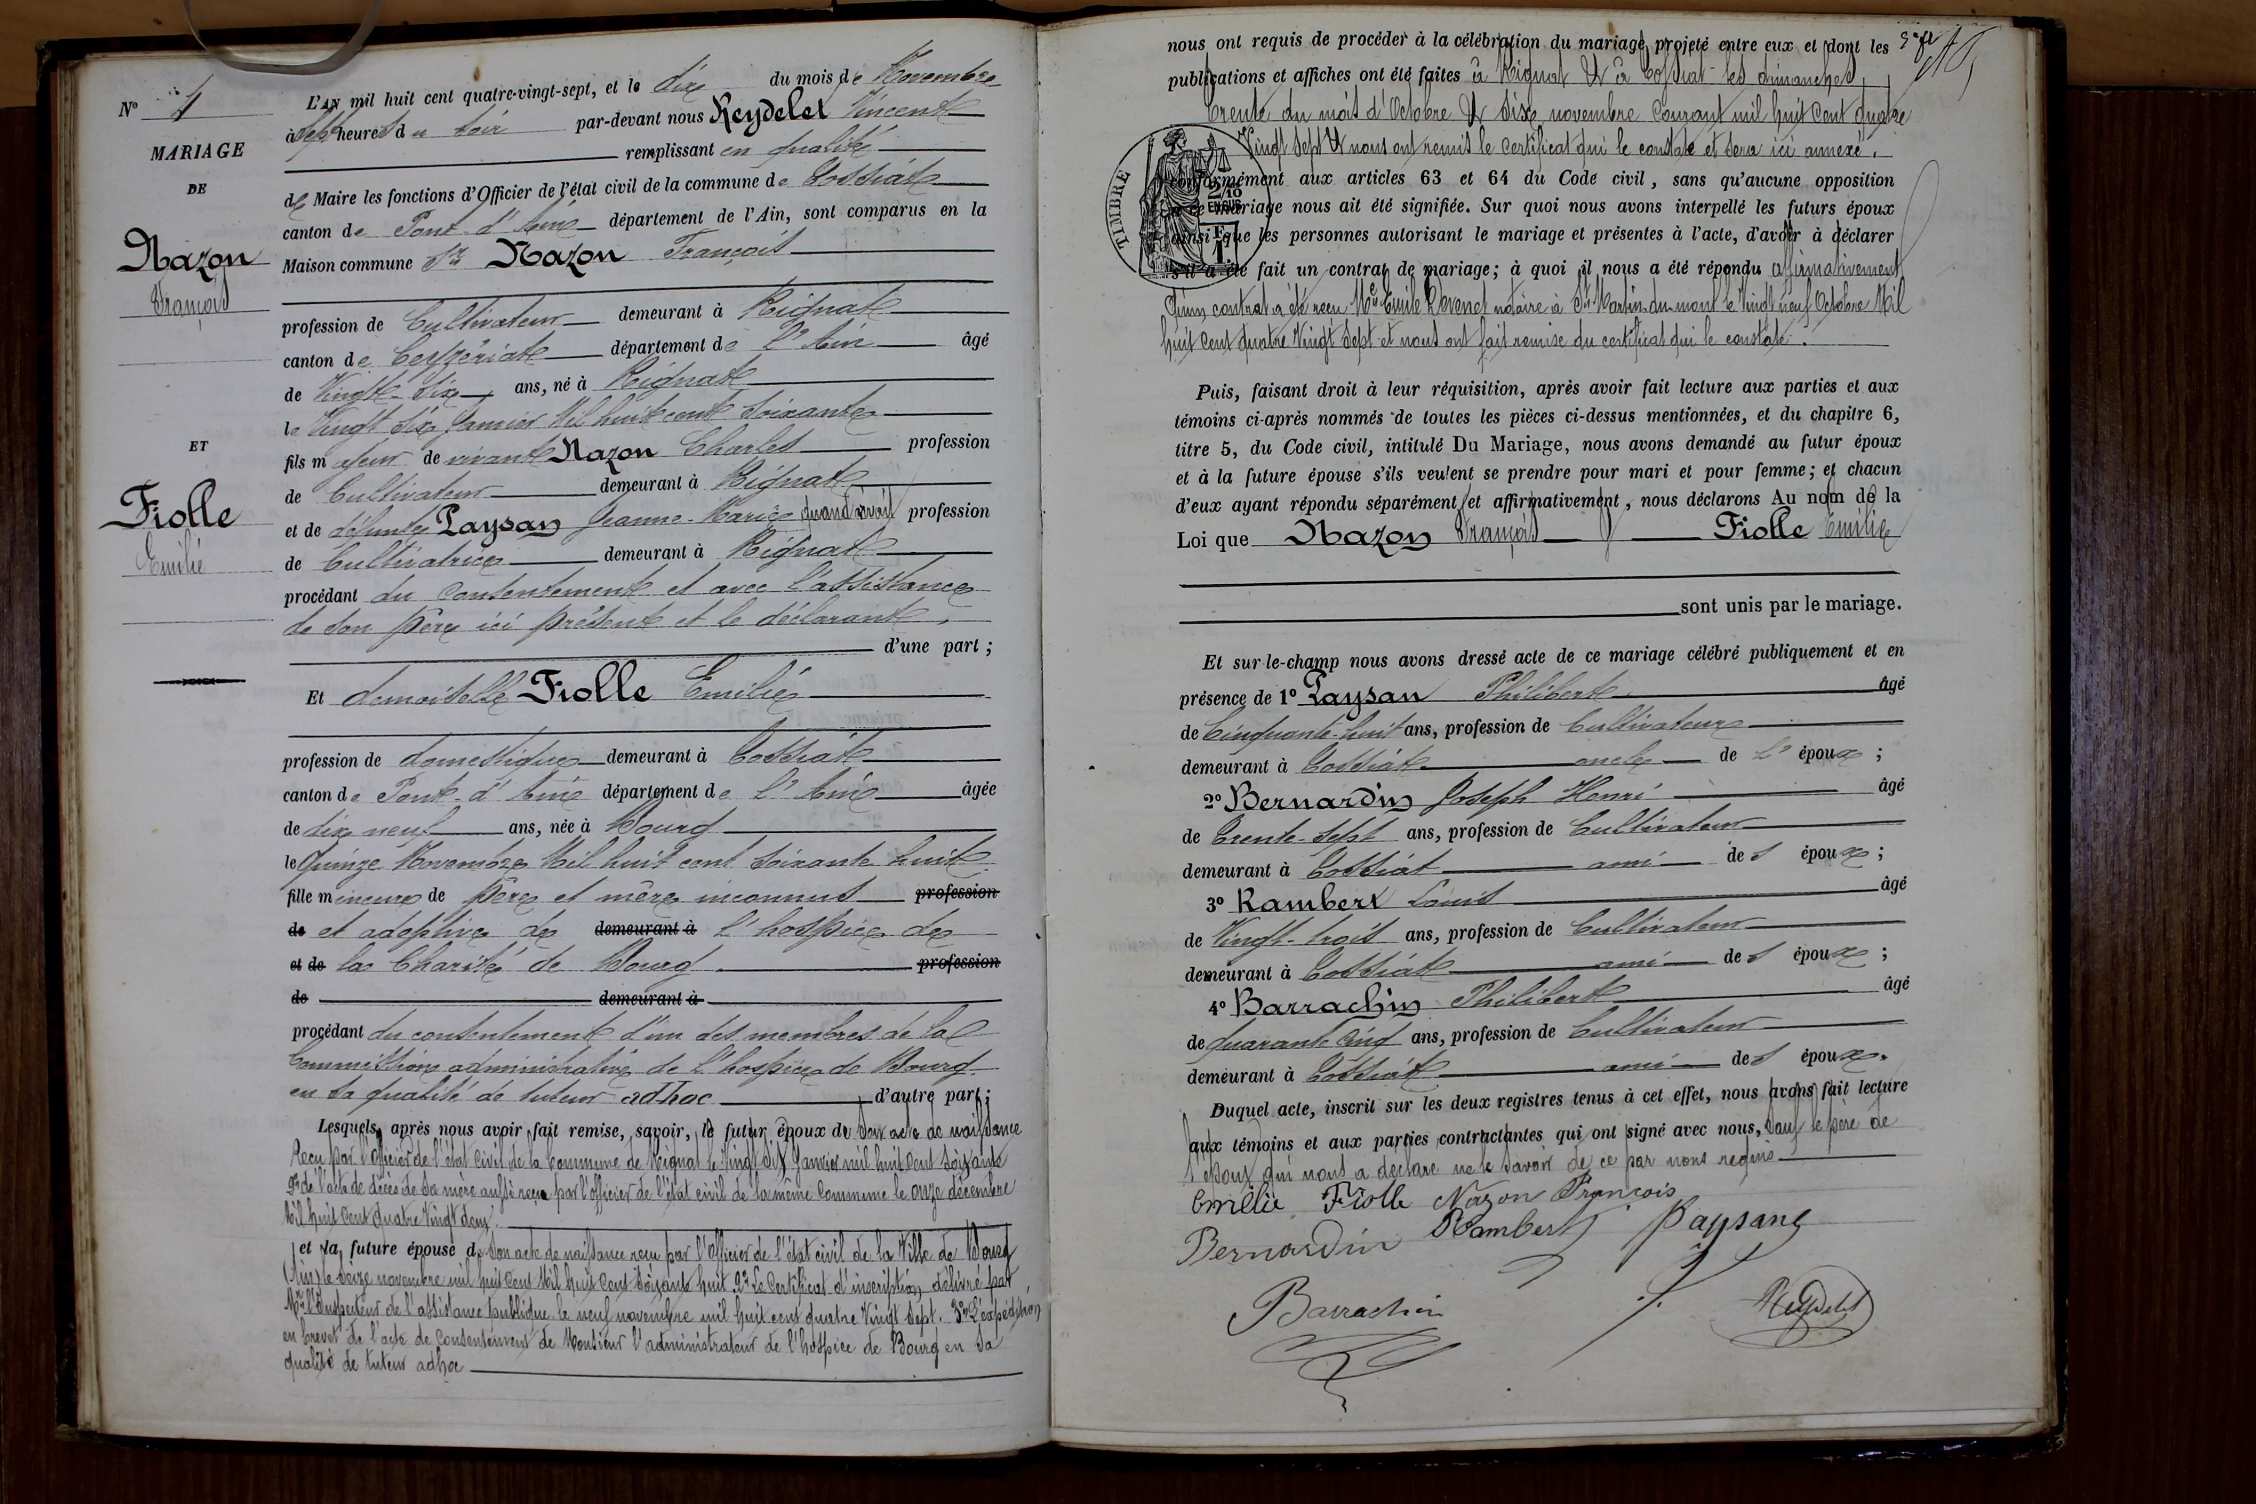 N° 4
MARIAGE
DE
Nazon
François
ET
Fiolle
Emilie
L'AN mil huit cent quatre-vingt-sept, et le dix du mois de Novembre
à Sept heures du soir par-devant nous Reydelet Vincent
remplissant en qualité
de Maire les fonctions d'Officier de l'état civil de la commune de Tossiat
canton de Pont-d'Ain département de l'Ain, sont comparus en la
Maison commune Sr Nazon François
profession de Cultivateur demeurant à Rignat
canton de Ceyzériat département de l'Ain âgé
de Vingt-Six ans, né à Rignat
le Vingt Six Janvier Mil huit cent soixante
fils majeur de vivant Nazon Charles profession
de Cultivateur demeurant à Rignat
et de défunte Paysan Jeanne-Marie quand vivait profession
de Cultivatrice demeurant à Rignat
procédant du consentement et avec l'assistance
de son père ici présent et le déclarant,
d'une part ;
Et demoiselle Fiolle Emilie
profession de domestique demeurant à Tossiat
canton de Pont-d'Ain département de l'Ain âgée
de dix neuf ans, née à Bourg
le quinze Novembre Mil huit cent soixante huit
fille mineure de père et mère inconnus profession
de et adoptive de demeurant à l'hospice de
et de la Charité de Bourg profession
de demeurant à
procédant du consentement d'un des membres de la
Commission administrative de l'hospice de Bourg
en sa qualité de tuteur ad hoc d'autre part ;
Lesquels, après nous avoir fait remise, savoir, le futur époux de son acte de naissance
Reçu par l'Officier de l'état civil de la Commune de Rignat le vingt six Janvier mil huit cent soixante
2° de l'acte de décès de sa mère aussi reçu par l'officier de l'état civil de la même commune le onze décembre
Mil huit cent quatre Vingt deux.
et la future épouse de son acte de naissance reçu par l'Officier de l'état civil de la Ville de Bourg
(Ain) le Seize novembre mil huit cent Mil huit cent soixante huit 2° Le Certificat d'inscription délivré par
Mr l'Inspecteur de l'assistance publique le neuf novembre mil huit cent quatre Vingt Sept. 3° L'expédition
en brevet de l'acte de consentement de Monsieur l'administrateur de l'hospice de Bourg en sa
qualité de tuteur adhoc
nous ont requis de procéder à la célébration du mariage projeté entre eux et dont les
publications et affiches ont été faites à Rignat & à Tossiat les dimanches
trente du mois d'Octobre & six novembre courant mil huit cent quatre
Vingt Sept & nous ont remis le certificat qui le constate et sera ici annexé.
TIMBRE
2/10
EN SUS
1 F.
conformément aux articles 63 et 64 du Code civil, sans qu'aucune opposition
à ce mariage nous ait été signifiée. Sur quoi nous avons interpellé les futurs époux
ainsi que les personnes autorisant le mariage et présentes à l'acte, d'avoir à déclarer
s'il a été fait un contrat de mariage ; à quoi il nous a été répondu affirmativement
qu'un contrat a été reçu Me Emile notaire à St Martin-du-mont le Vingt neuf Octobre Mil
huit cent quatre Vingt Sept et nous ont fait remise du certificat qui le constate.
Puis, faisant droit à leur réquisition, après avoir fait lecture aux parties et aux
témoins ci-après nommés de toutes les pièces ci-dessus mentionnées, et du chapitre 6,
titre 5, du Code civil, intitulé Du Mariage, nous avons demandé au futur époux
et à la future épouse s'ils veulent se prendre pour mari et pour femme ; et chacun
d'eux ayant répondu séparément et affirmativement, nous déclarons Au nom de la
Loi que Nazon François & Fiolle Emilie
sont unis par le mariage.
Et sur-le-champ nous avons dressé acte de ce mariage célébré publiquement et en
présence de 1° Paysan Philibert âgé
de Cinquante-huit ans, profession de Cultivateur
demeurant à Tossiat oncle de l' époux ;
2° Bernardin Joseph Henri âgé
de Trente-Sept ans, profession de Cultivateur
demeurant à Tossiat ami des époux ;
3° Rambert Louis âgé
de Vingt-trois ans, profession de Cultivateur
demeurant à Tossiat ami des époux ;
4° Barrachin Philibert âgé
de quarante cinq ans, profession de Cultivateur
demeurant à Tossiat ami des époux.
Duquel acte, inscrit sur les deux registres tenus à cet effet, nous avons fait lecture
aux témoins et aux parties contractantes qui ont signé avec nous, sauf le père de
l'époux qui nous a déclaré ne le savoir de ce par nous requis.
Emélie Fiolle Nazon François
Bernardin Rambert Paysang
Barrachin Reydelet